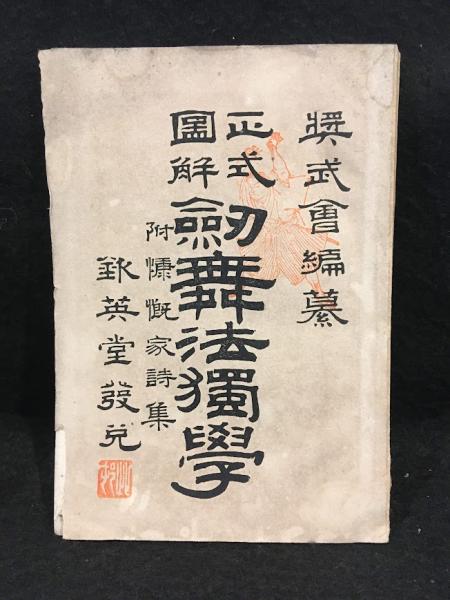 奬武會編纂
正式
圖解
劔舞法獨學
附慷慨家詩集
鍬英堂發兌